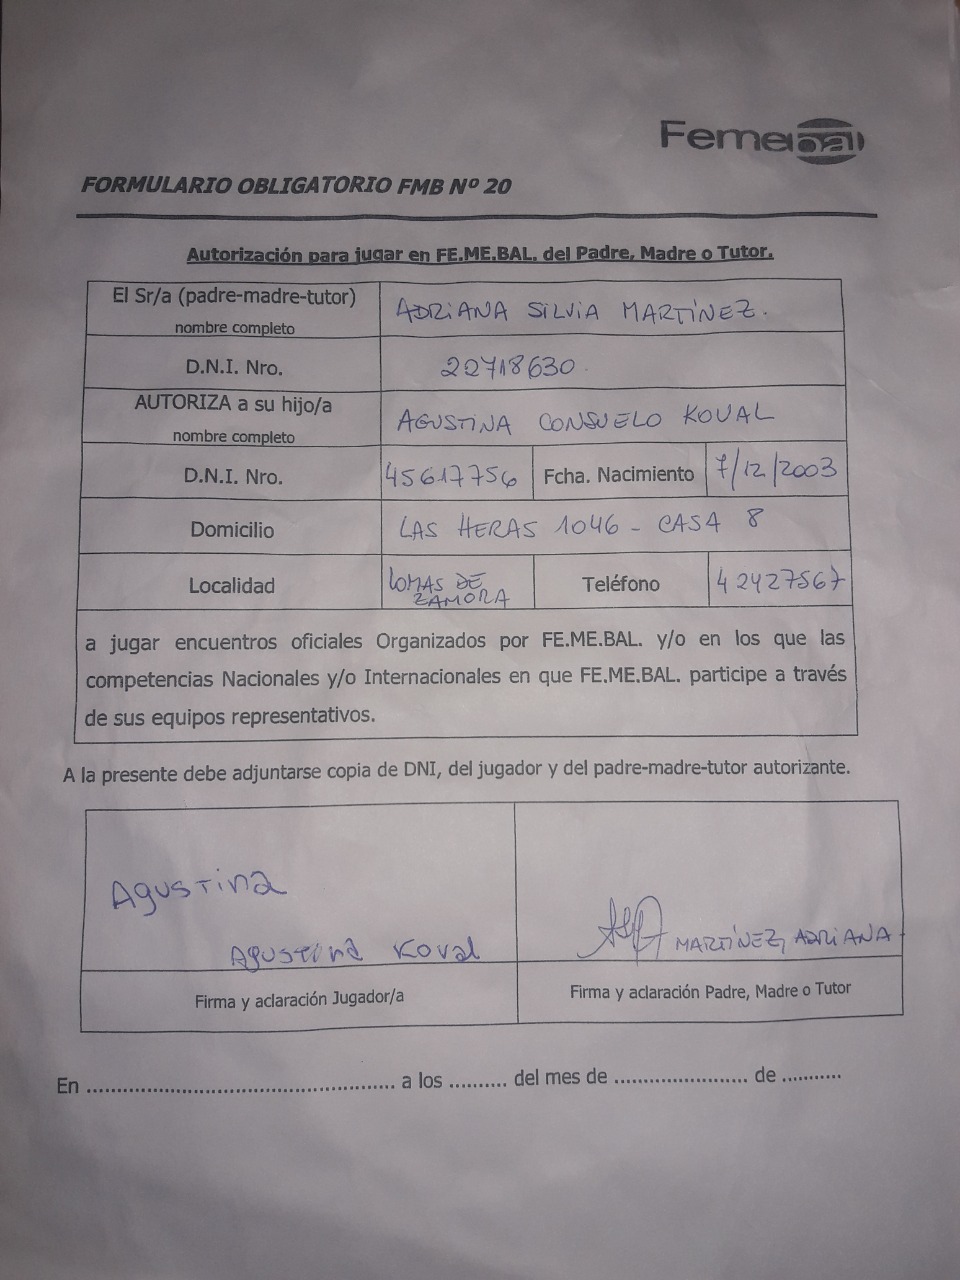 Femebal
FORMULARIO OBLIGATORIO FMB Nº 20
Autorización para jugar en FE.ME.BAL. del Padre, Madre o Tutor.
El Sr/a (padre-madre-tutor)
nombre completo
ADRIANA SILVIA MARTÍNEZ.
D.N.I. Nro.
22718630.
AUTORIZA a su hijo/a
nombre completo
AGUSTINA CONSUELO KOVAL
D.N.I. Nro.
45617756
Fcha. Nacimiento
7/12/2003
Domicilio
LAS HERAS 1046 - CASA 8
Localidad
LOMAS DE
ZAMORA
Teléfono
42427567
a jugar encuentros oficiales Organizados por FE.ME.BAL. y/o en los que las
competencias Nacionales y/o Internacionales en que FE.ME.BAL. participe a través
de sus equipos representativos.
A la presente debe adjuntarse copia de DNI, del jugador y del padre-madre-tutor autorizante.
Agustina
Agustina Koval
MARTÍNEZ, ADRIANA
Firma y aclaración Jugador/a
Firma y aclaración Padre, Madre o Tutor
En ................................................ a los .......... del mes de ....................... de ...........